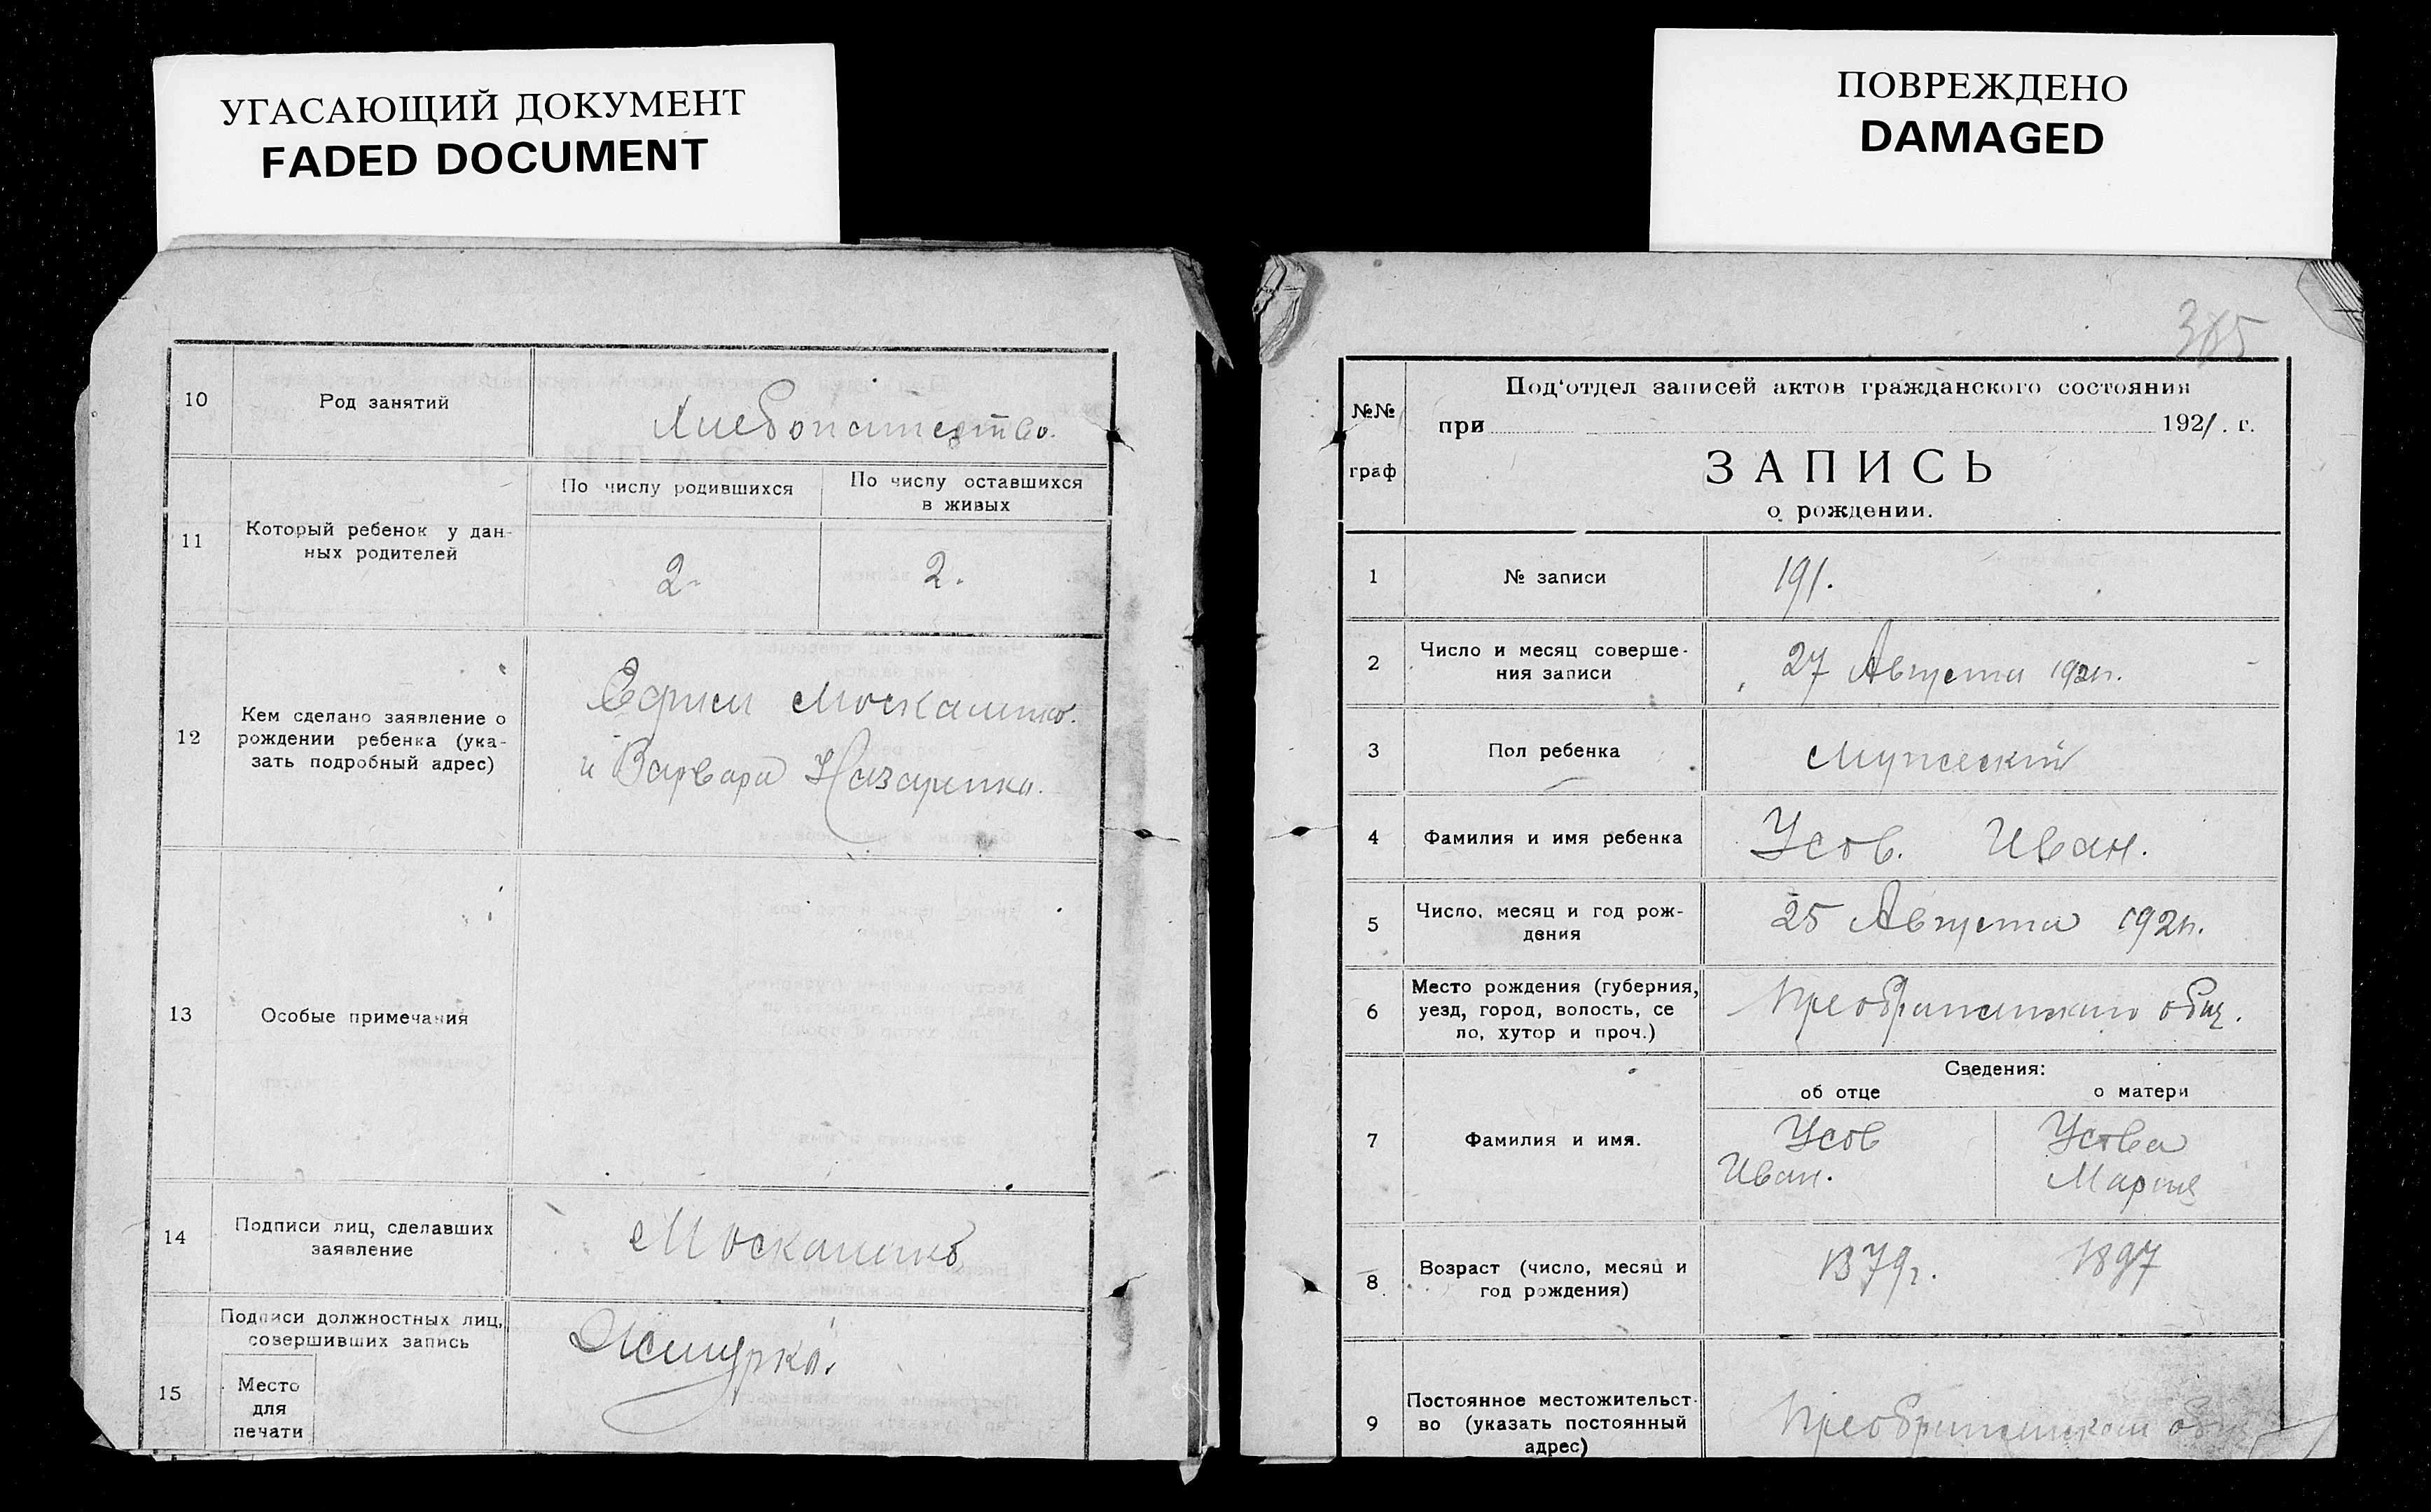 УГАСАЮЩИЙ ДОКУМЕНТ
FADED DOCUMENT
10
Род занятий
Хлебопашество.
11
Который ребенок у дан-
ных родителей
По числу родившихся
По числу оставшихся
в живых
2.
2.
12
Кем сделано заявление о
рождении ребенка (ука-
зать подробный адрес)
Ефим
и Варвара Назаренко.
13
Особые примечания
14
Подписи лиц, сделавших
заявление
15
Подписи должностных лиц,
совершивших запись
Место
для
печати
ПОВРЕЖДЕНО
DAMAGED
365
№№
граф
Под‘отдел записей актов гражданского состояния
при 1921. г.
ЗАПИСЬ
о рождении.
1
№ записи
191.
2
Число и месяц соверше-
ния записи
27 Августа 1921г.
3
Пол ребенка
Мужеский
4
Фамилия и имя ребенка
Усов. Иван.
5
Число, месяц и год рож-
дения
25 Августа 1921г.
6
Место рождения (губерния,
уезд, город, волость, се
ло, хутор и проч.)
общ.
7
Фамилия и имя.
Сведения:
об отце
о матери
Усов
Иван.
Усова
Мария
8
Возраст (число, месяц и
год рождения)
1879г.
1897
9
Постоянное местожительст-
во (указать постоянный
адрес)